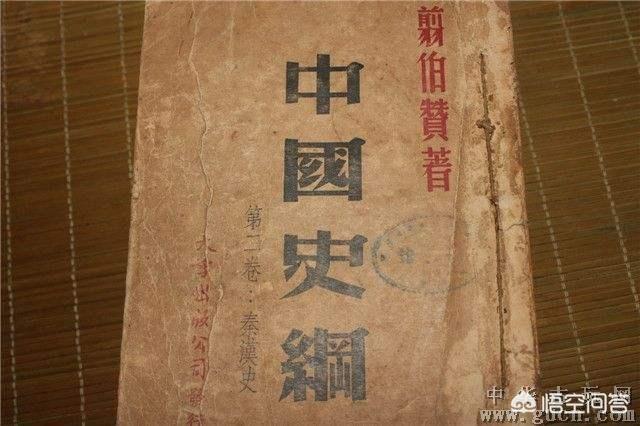 翦伯贊著
中國史綱
第二卷：秦漢史
大孚出版公司發行
中华古玩网
www.gucn.com
悟空问答